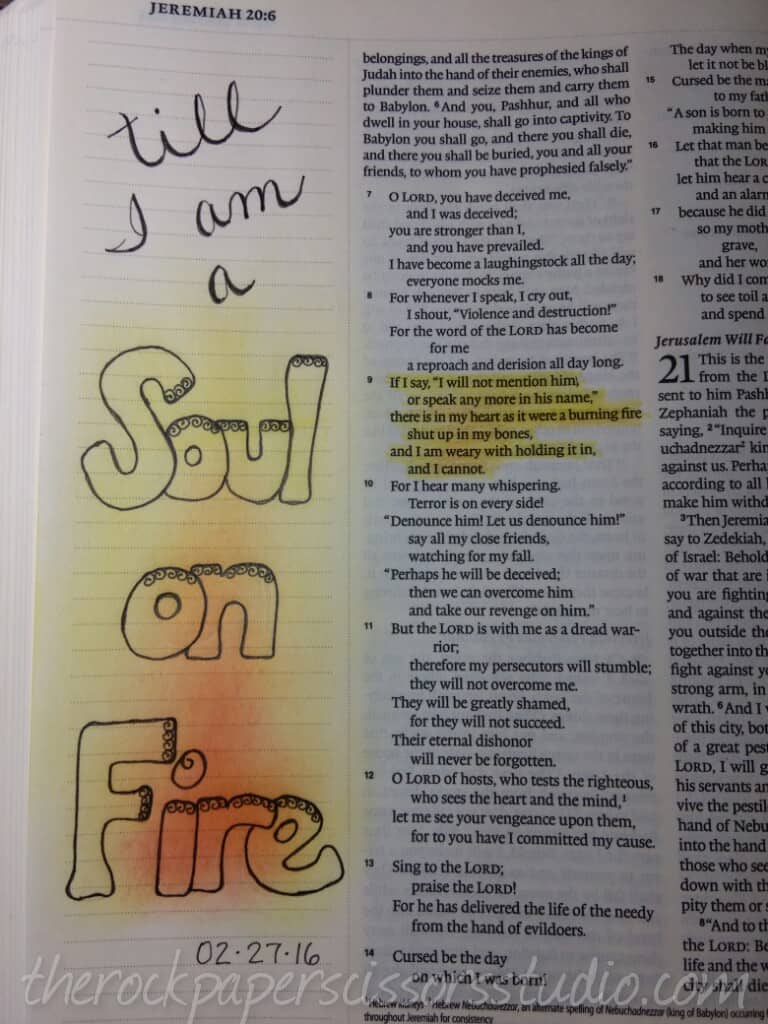 JEREMIAH 20:6
till
I am
a
Soul
on
Fire
02·27·16
belongings, and all the treasures of the kings of
Judah into the hand of their enemies, who shall
plunder them and seize them and carry them
to Babylon. ⁶And you, Pashhur, and all who
dwell in your house, shall go into captivity. To
Babylon you shall go, and there you shall die,
and there you shall be buried, you and all your
friends, to whom you have prophesied falsely.”
7 O LORD, you have deceived me,
and I was deceived;
you are stronger than I,
and you have prevailed.
I have become a laughingstock all the day;
everyone mocks me.
8 For whenever I speak, I cry out,
I shout, “Violence and destruction!”
For the word of the LORD has become
for me
a reproach and derision all day long.
9 If I say, “I will not mention him,
or speak any more in his name,”
there is in my heart as it were a burning fire
shut up in my bones,
and I am weary with holding it in,
and I cannot.
10 For I hear many whispering.
Terror is on every side!
“Denounce him! Let us denounce him!”
say all my close friends,
watching for my fall.
“Perhaps he will be deceived;
then we can overcome him
and take our revenge on him.”
11 But the LORD is with me as a dread war-
rior;
therefore my persecutors will stumble;
they will not overcome me.
They will be greatly shamed,
for they will not succeed.
Their eternal dishonor
will never be forgotten.
12 O LORD of hosts, who tests the righteous,
who sees the heart and the mind,¹
let me see your vengeance upon them,
for to you have I committed my cause.
13 Sing to the LORD;
praise the LORD!
For he has delivered the life of the needy
from the hand of evildoers.
14 Cursed be the day
on which I was born!
The day when my
let it not be
15 Cursed be the
to my
“A son is born to
making him
16 Let that man be
that the
let him hear a
and an
17 because he did
so my
grave,
and her
18 Why did I
to see toil
and spend
Jerusalem Will
21 This is the
from the
sent to him
Zephaniah the
saying, ²“Inquire
uchadnezzar²
against us.
according to all
make him
³Then
say to Zedekiah,
of Israel:
of war that are
you are
and against the
you outside the
together into the
fight against
strong arm, in
wrath. ⁶And I
of this city,
of a great
LORD, I will
his servants
vive the
hand of
into the hand
those who
down with
pity them or
⁸“And to
the LORD:
life and the
city shall
¹Hebrew kidneys ²Hebrew Nebuchadrezzar, an alternate spelling of Nebuchadnezzar (king of Babylon) occurring
throughout Jeremiah for consistency
therockpaperscissorsstudio.com